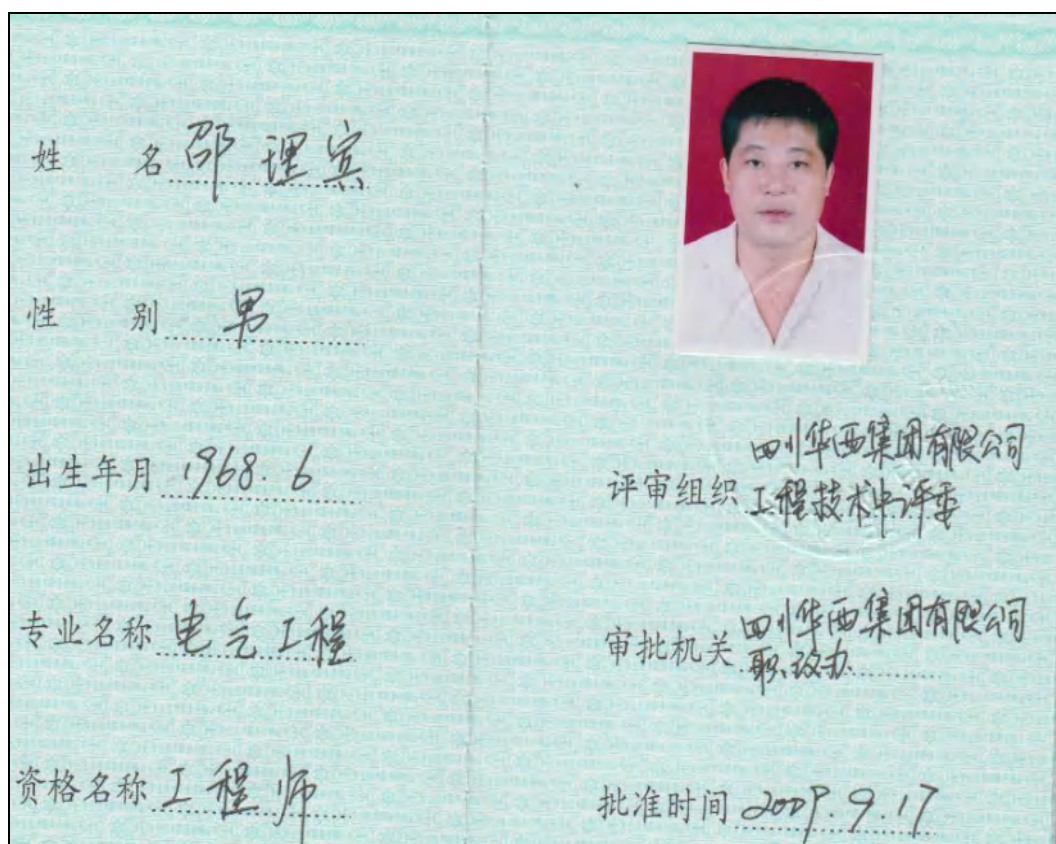 姓 名 邵理宾
性 别 男
出生年月 1968.6
专业名称 电气工程
资格名称 工程师
四川华西集团有限公司
评审组织 工程技术中评委
四川华西集团有限公司
审批机关
职改办
批准时间 2009.9.17